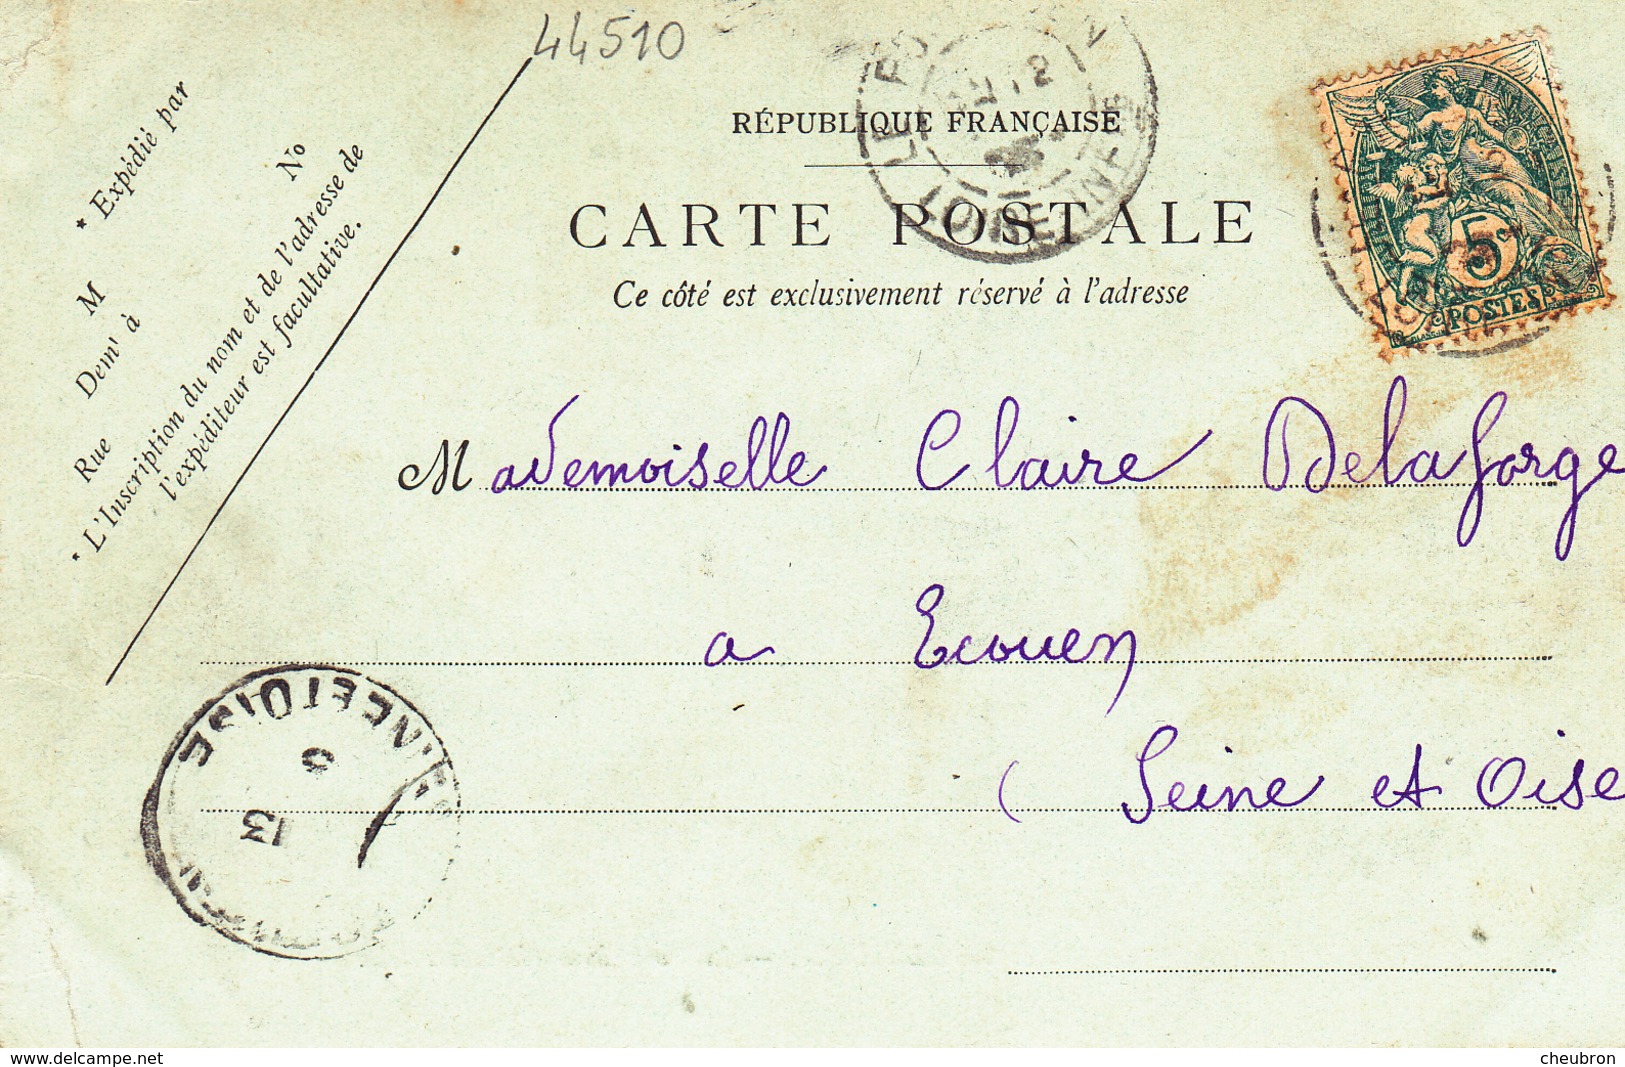 44510
RÉPUBLIQUE FRANÇAISE
CARTE POSTALE
Ce côté est exclusivement réservé à l'adresse
* Expédié par
M
Demt à
Rue No
* L'Inscription du nom et de l'adresse de
l'expéditeur est facultative.
Mademoiselle Claire Delaforge
a Ecouen
( Seine et Oise
5c
POSTES
INFÉRRE
SEINE ET OISE
13
3
www.delcampe.net
cheubron